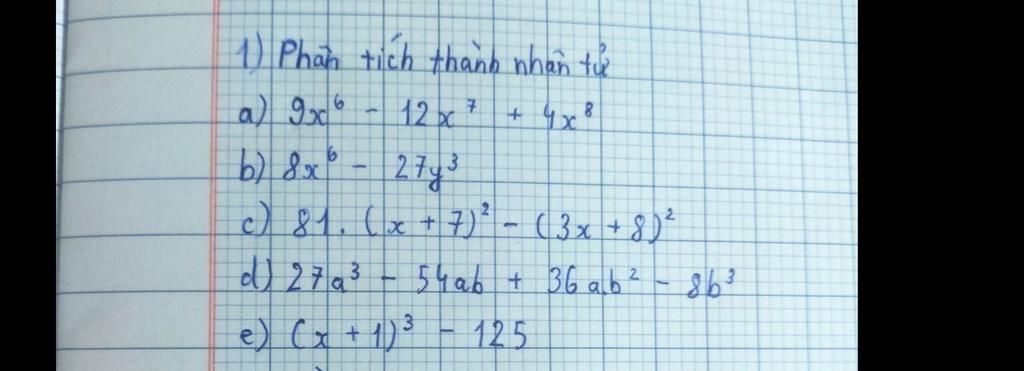 1) Phân tích thành nhân tử
a) 9x⁶ - 12x⁷ + 4x⁸
b) 8x⁶ - 27y³
c) 81. (x + 7)² - (3x + 8)²
d) 27a³ - 54ab + 36ab² - 8b³
e) (x + 1)³ - 125